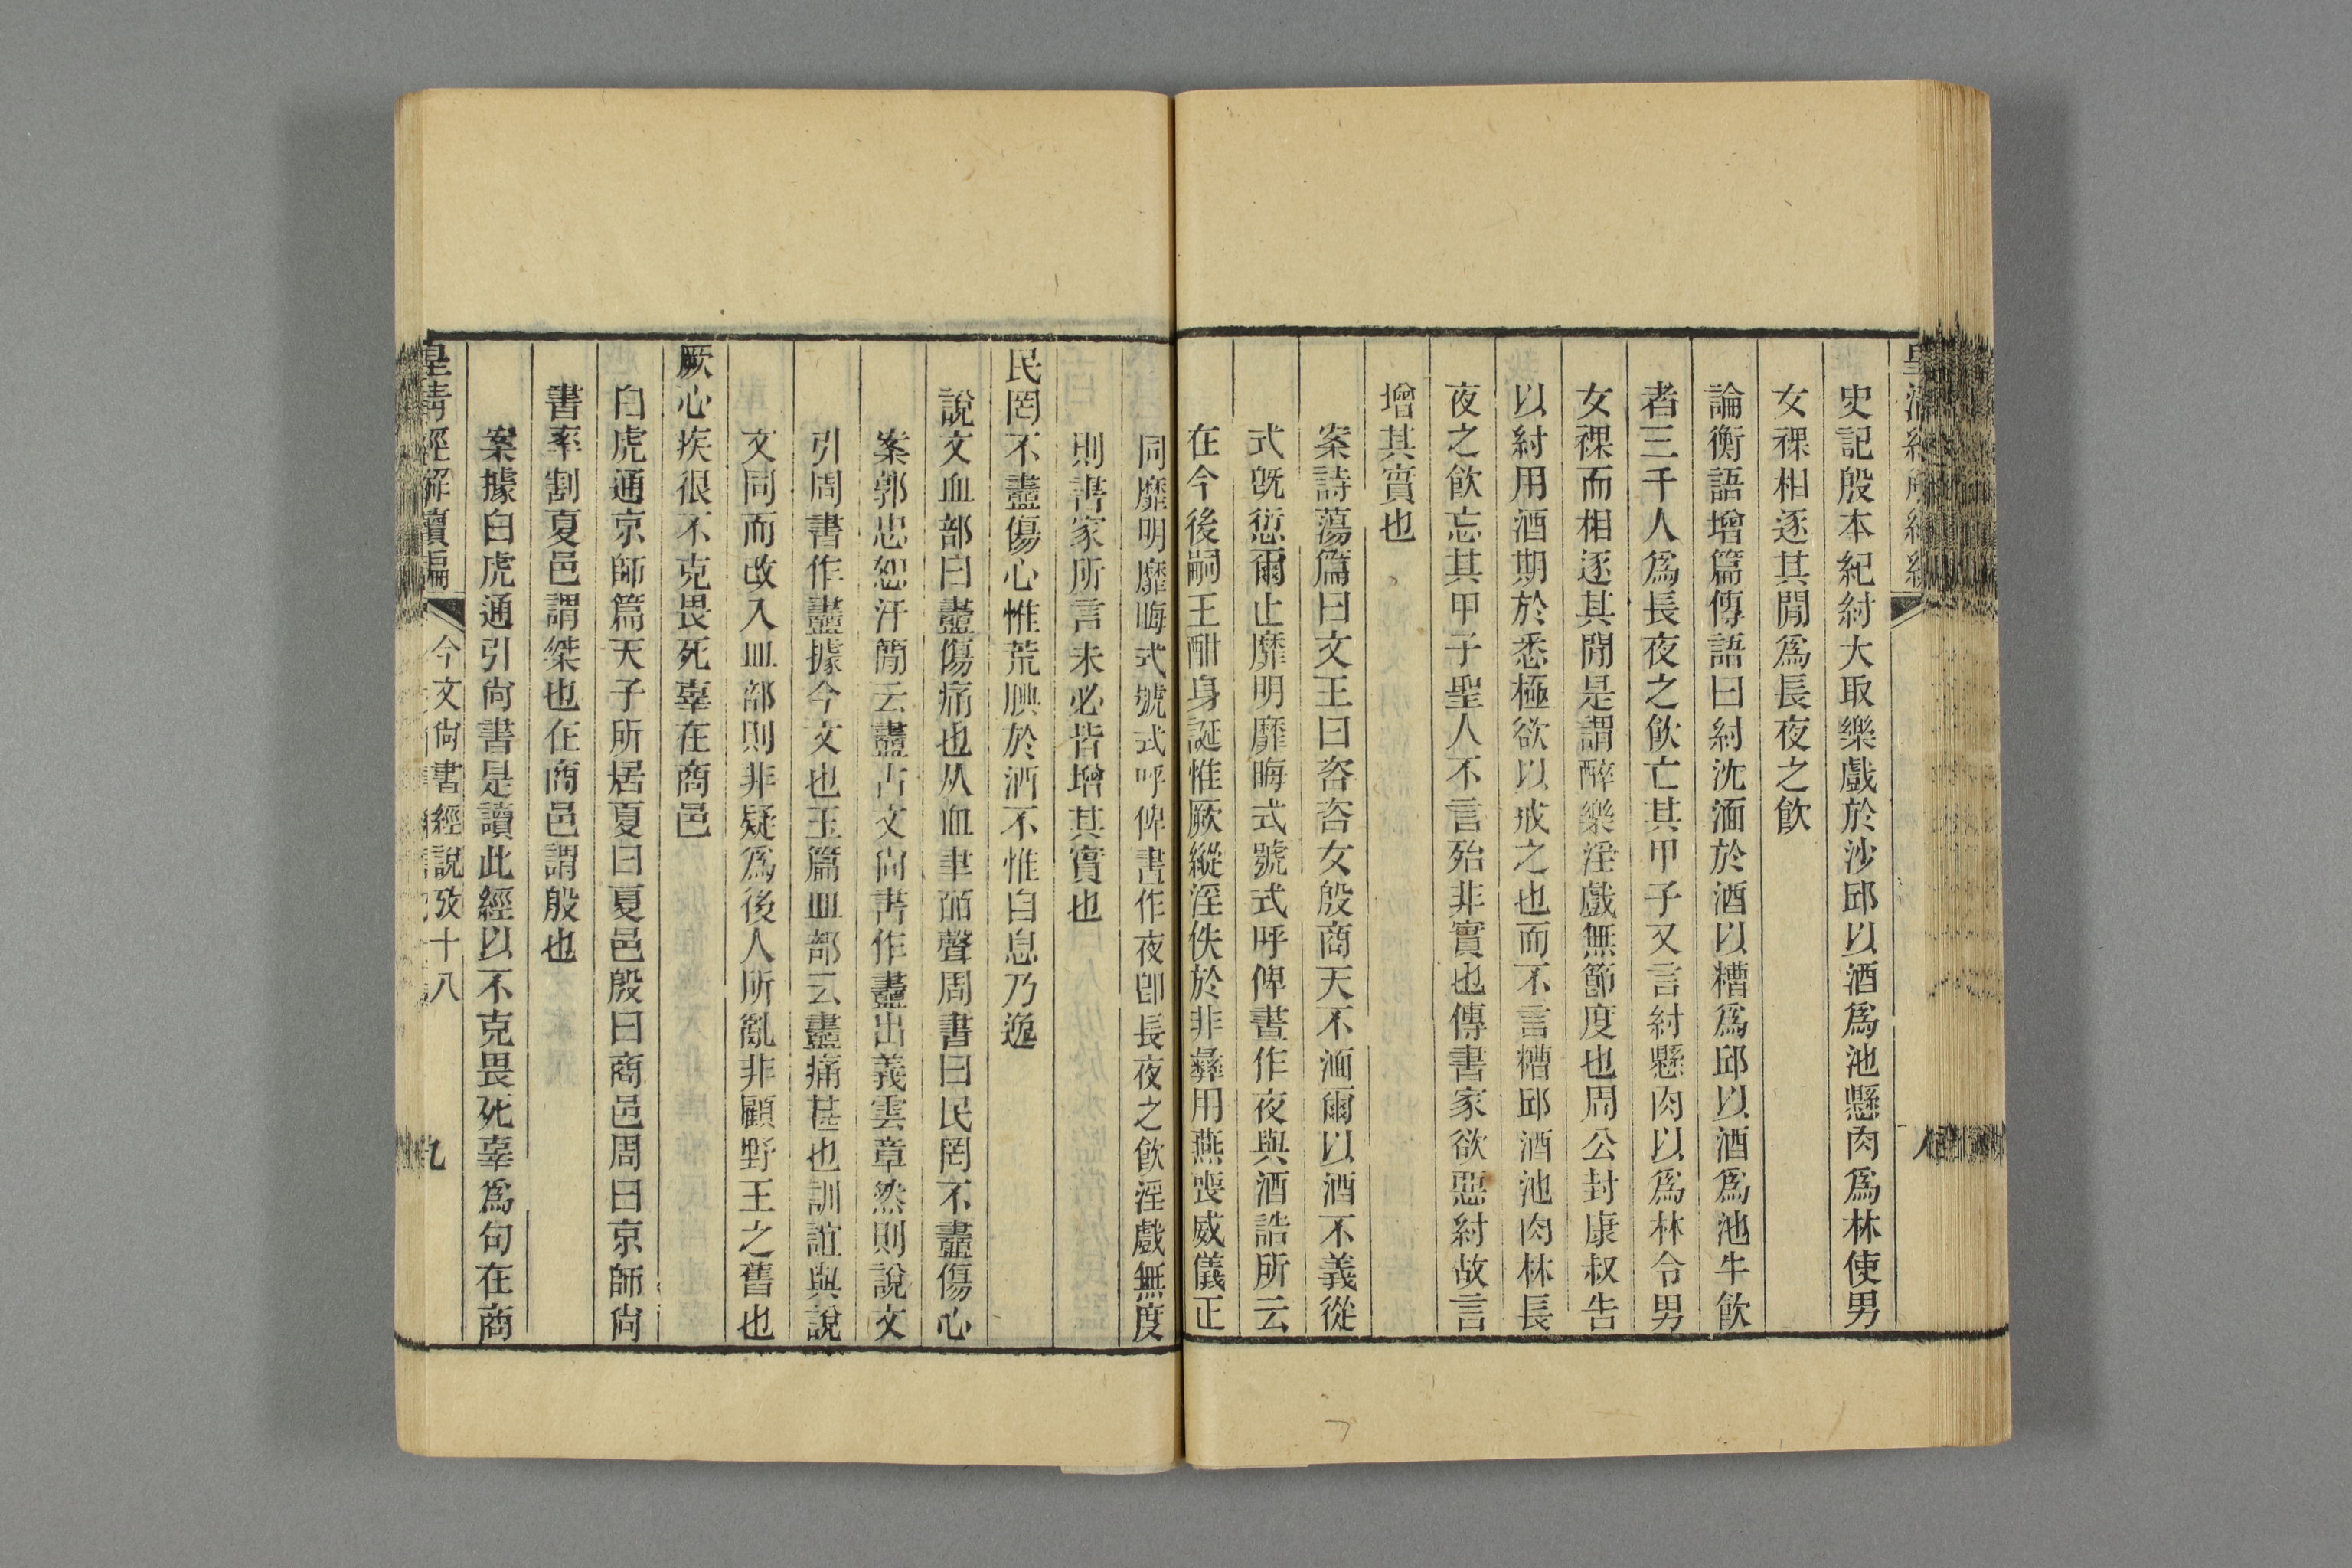 史記殷本紀紂大取樂戲於沙邱以酒爲池懸肉爲林使男
女裸相逐其閒爲長夜之飮
論衡語增篇傳語曰紂沈湎於酒以糟爲邱以酒爲池牛飮
者三千人爲長夜之飮亡其甲子又言紂懸肉以爲林令男
女裸而相逐其閒是謂醉樂淫戲無節度也周公封康叔告
以紂用酒期於悉極欲以戒之也而不言糟邱酒池肉林長
夜之飮忘其甲子聖人不言殆非實也傳書家欲惡紂故言
增其實也
案詩蕩篇曰文王曰咨咨女殷商天不湎爾以酒不義從
式旣愆爾止靡明靡晦式號式呼俾晝作夜與酒誥所云
在今後嗣王酣身誕惟厥縱淫佚於非彝用燕喪威儀正
同靡明靡晦式號式呼俾晝作夜卽長夜之飮淫戲無度
則書家所言未必皆增其實也
民罔不衋傷心惟荒腆於酒不惟自息乃逸
說文血部曰衋傷痛也从血聿皕聲周書曰民罔不衋傷心
案郭忠恕汗簡云衋古文尙書作衋出義雲章然則說文
引周書作衋據今文也玉篇血部云衋痛甚也訓誼與說
文同而改入皿部則非疑爲後人所亂非顧野王之舊也
厥心疾很不克畏死辜在商邑
白虎通京師篇天子所居夏曰夏邑殷曰商邑周曰京師尙
書率割夏邑謂桀也在商邑謂殷也
案據白虎通引尙書是讀此經以不克畏死辜爲句在商
皇淸經解續編 今文尙書經說攷十八 九